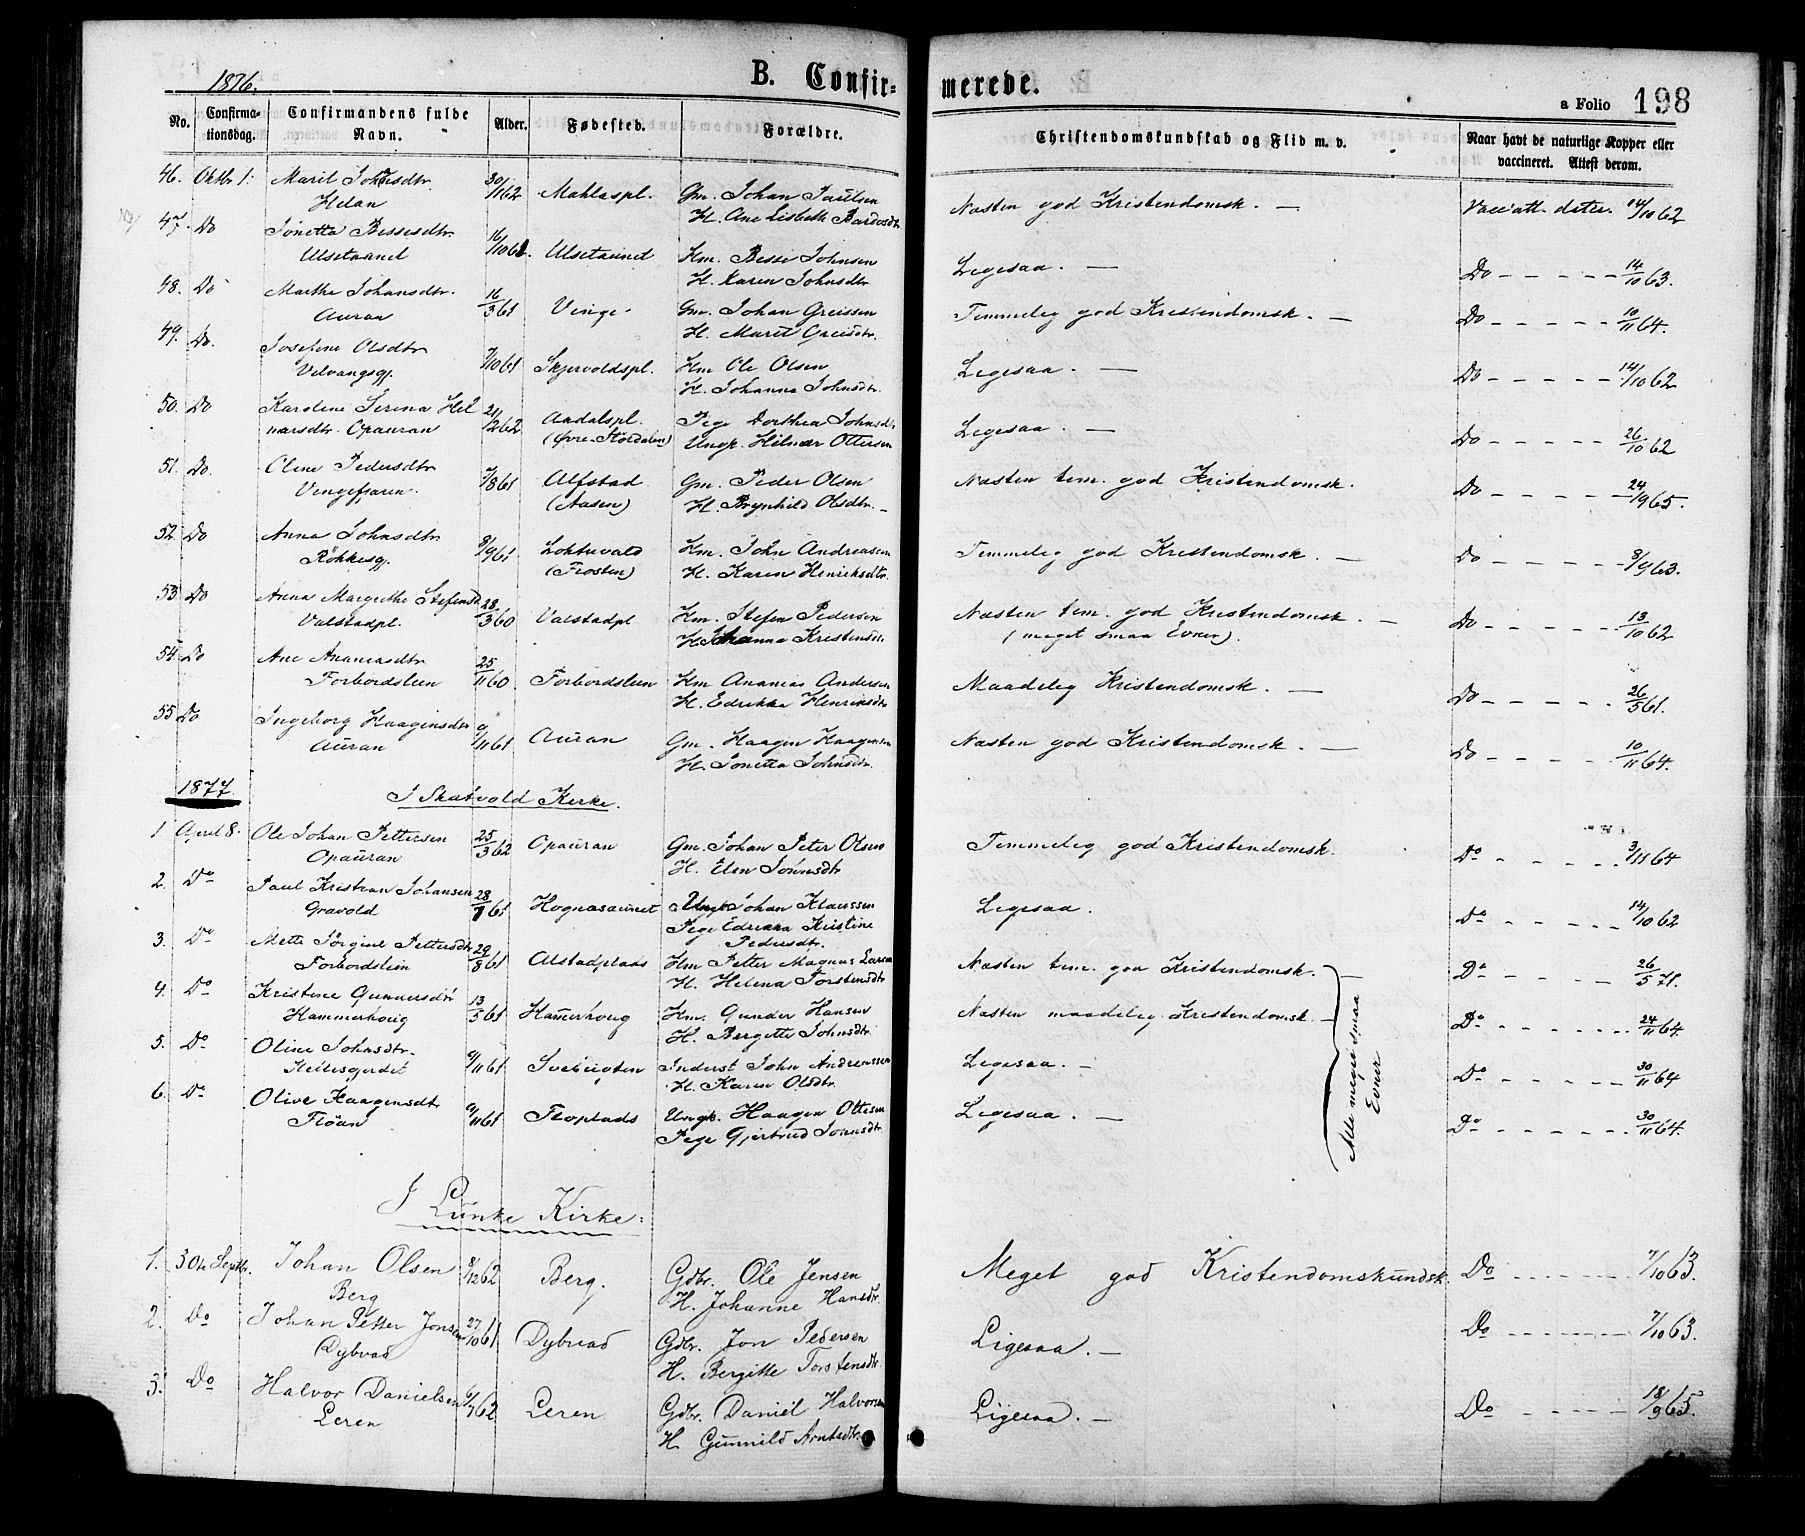 1876.
B. Confirmerede.
a Folio 198
No.
Confirmationsdag.
Confirmandens fulde Navn.
Alder.
Fødested.
Forældre.
Christendomskundskab og Flid m. v.
Naar havt de naturlige Kopper eller vaccineret. Attest derom.
46. Oktbr 1. Marit Johnsdtr. 30/11 62 Mahlaspl. Gm. Johan Paulsen Næsten god Kristendomsk. — Vacc. att. dater. 14/10 62
Helan H. Ane Lisbeth Bardosdtr
47. Do Jonetta Bessesdtr. 16/10 61. Ulsetaunet Hm. Besse Johnsen Ligesaa. — Do 14/10 63.
Ulsetaunet H. Karen Johnsdtr
48. Do Marthe Johansdtr. 16/3 61 Vinge Gm. Johan Greissen Temmelig god Kristendomsk. — Do 10/11 64.
Auran H. Marit Greisdtr.
49. Do. Josefine Olsdtr 7/10 61 Skjervoldspl. Hm Ole Olsen Ligesaa. — Do 14/10 62
Velvangsgj. H. Johanna Johnsdtr.
50. Do Karoline Serina Hel 21/2 62 Aadalspl. Pige Dorthea Johnsdtr Ligesaa. — Do 26/10 62
marsdtr. Opauran (Øvre-Stördalen) Ungk. Hilmar Ottersen
51. Do. Oline Pedersdtr 7/8 61 Alfstad Gm. Peder Olsen Næsten tem. god Kristendomsk. Do 24/9 65.
Vingefjaren. (Aasen) H. Brynhild Olsdtr.
52. Do Anna Johnsdtr 8/9 61 Loktuvald Hm. John Andreasen Temmelig god Kristendomsk. — Do 8/9 63.
Rökkesgj. (Frosten) H. Karen Henriksdtr.
53 Do Anna Margrethe Stefensd. 28/3 60 Valstadpl Hm. Stefen Pedersen Næsten tem. god Kristendomsk. — Do 13/10 62
Valstadpl. H. Johanna Kristensdtr (meget smaa Evner).
54 Do Ane Ananiasdtr 25/11 60 Forbordsleen Hm Ananias Andersen Maadelig Kristendomsk. — Do 26/5 61.
Forbordsleen H. Edrikka Henriksdtr
55 Do Ingeborg Haagensdtr 9/11 61 Auran Gm. Haagen Haagensen Næsten god Kristendomsk. — Do 10/11 64.
Auran H. Jonetta Johnsdtr.
1877. I Skatvold Kirke.
1 April 8. Ole Johan Pettersen 25/3 62 Opauran Gm. Johan Peter Olsen Temmelig god Kristendomsk. Do 3/11 64
Opauran H. Elen Jonnsdtr
2. Do Paul Kristian Johansen 28/7 61 Hognasaunet Ungk. Johan Klaussen Ligesaa. Do 14/10 62
Gravold Pige Edrikka Kristine
Pedersdtr.
3. Do Mette Jörgine Pettersdtr 29/8 61 Alstadplads Hm Petter Magnus Larsen Næsten tem. god Kristendomsk. Do 26/5 71.
Forbordsleen H. Helena Torstensdtr
4. Do Kristine Gundersdtr 13/5 61 Hammerhoug Hm. Gunder Hansen Næsten maadelig Kristendomsk. Do 24/11 64.
Hammerhoug H. Bergitte Johnsdtr
5. Do Oline Johnsdtr. 9/11 61 Svebugten Inderst John Andreassen Ligesaa. Do 30/11 64
H. Karen Olsdtr.
6. Do Olive Haagensdtr 9/11 61 Floplads Ungk. Haagen Ottesen Ligesaa. — Do 30/11 64.
Flöan Pige Gjertrud Jonnsdtr.
Alle meget smaa
Evner
I Lunke Kirke:
1. 30te Septbr. Johan Olsen 8/12 62 Berg. Gdbr. Ole Jensen Meget god Kristendomskundsk. Do 7/10 63.
Berg H. Johanne Hansdtr.
2. Do Johan Petter Jonsen 27/10 61 Dybvad Gdbr. Jon Pedersen Ligesaa. — Do 7/10 63.
Dybvad H. Bergitte Torstensdtr.
3. Do Halvor Danielsen 6/7 62 Leren Gdbr. Daniel Halvorsen Ligesaa. — Do 18/9 65.
Leren H. Gunnild Arntsdtr.